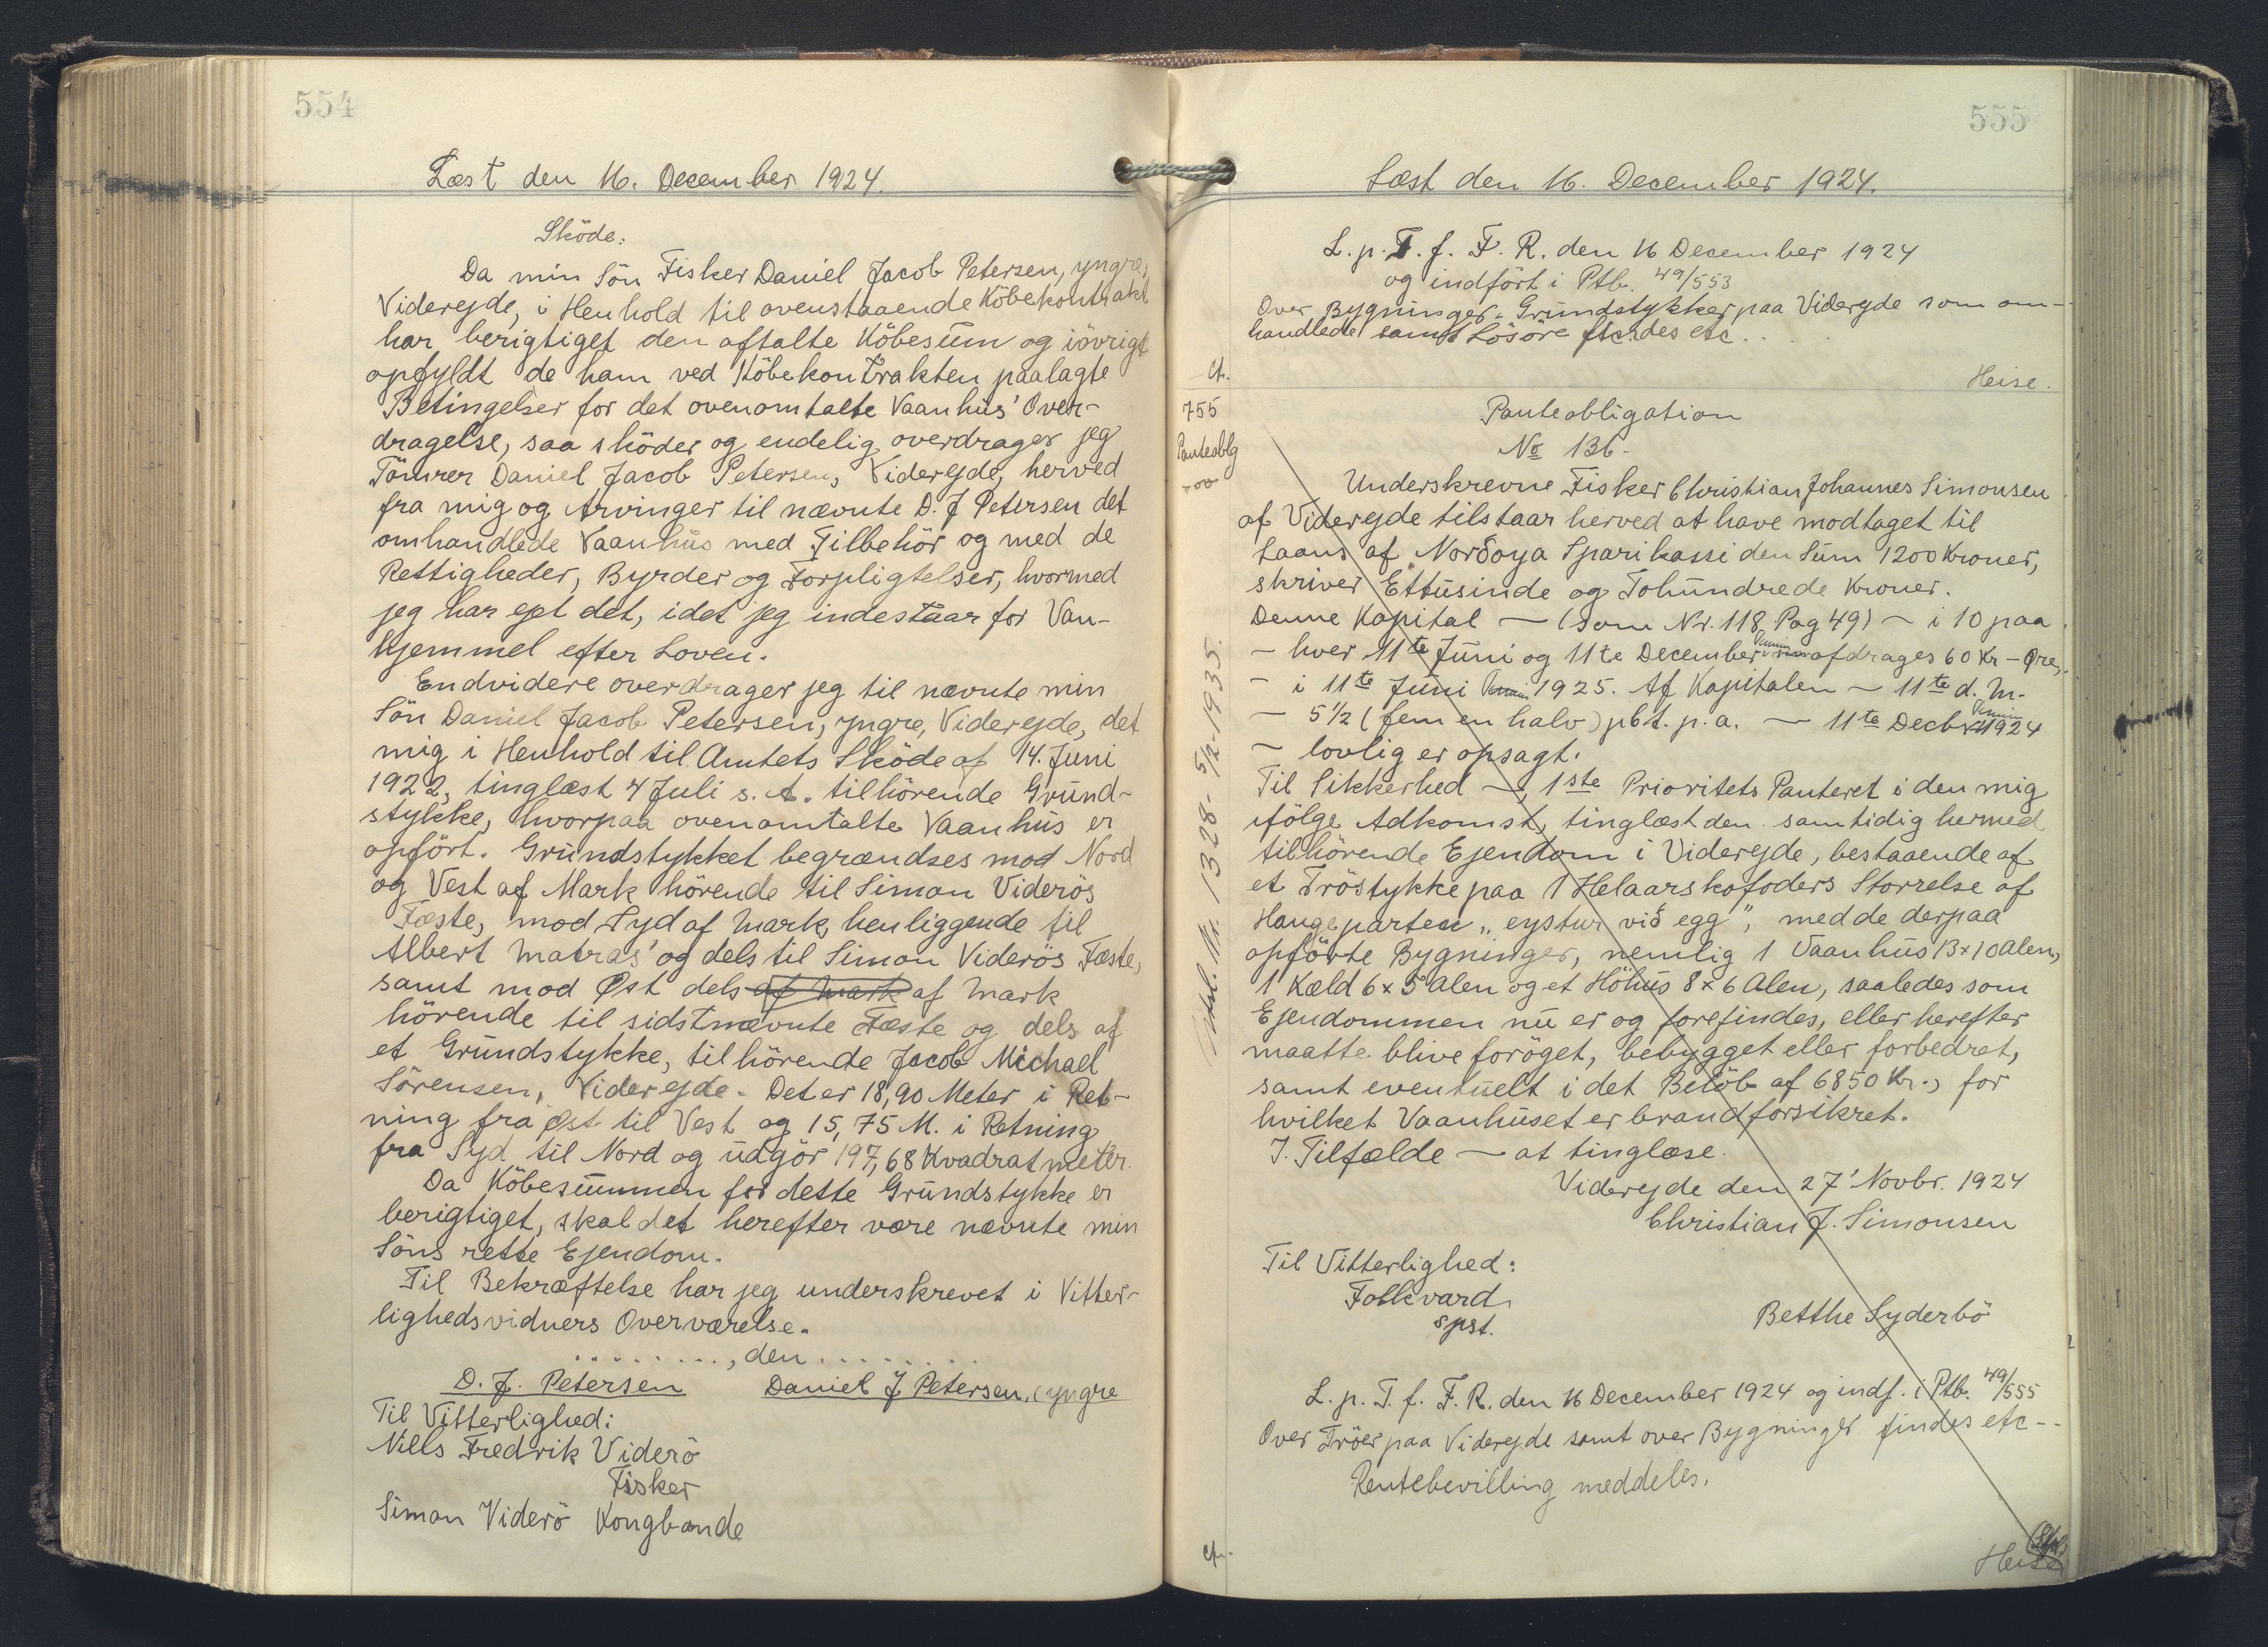 554
Læst den 16. December 1924.
Sköde:
Da min Sön Fisker Daniel Jacob Petersen, yngre,
Viderejde, i Henhold til ovenstaaende Köbekontrakt
har berigtiget den aftalte Köbesum og iövrigt
opfyldt de ham ved Köbekontrakten paalagte
Betingelser for det ovenomtalte Vaanhus' Over-
dragelse, saa sköder og endelig overdrager jeg
Tömrer Daniel Jacob Petersen, Viderejde, herved
fra mig og Arvinger til nævnte D. J Petersen det
omhandlede Vaanhus med Tilbehör og med de
Rettigheder, Byrder og Forpligtelser, hvormed
jeg har ejet det, idet jeg indestaar for Van-
hjemmel efter Loven.
Endvidere overdrager jeg til nævnte min
Sön Daniel Jacob Petersen, yngre, Viderejde, det
mig i Henhold til Amtets Sköde af 14. Juni
1922, tinglæst 4 Juli s. A. tilhörende Grund-
stykke, hvorpaa ovenomtalte Vaanhus er
opfört. Grundstykket begrændses mod Nord
og Vest af Mark hörende til Simon Viderös
Fæste, mod Syd af Mark, henliggende til
Albert Matras' og dels til Simon Viderös Fæste,
samt mod Øst dels af Mark af Mark
hörende til sidstnævnte Fæste og dels af
et Grundstykke, tilhörende Jacob Michael
Sörensen, Viderejde. Det er 18,90 Meter i Ret-
ning fra Øst til Vest og 15,75 M. i Retning
fra Syd til Nord og udgör 197,68 Kvadratmeter.
Da Köbesummen for dette Grundstykke er
berigtiget, skal det herefter være nævnte min
Söns rette Ejendom.
Til Bekræftelse har jeg underskrevet i Vitter-
lighedsvidners Overværelse.
........, den ........
D. J. Petersen Daniel J Petersen, (yngre
Til Vitterlighed:
Niels Fredrik Viderö
Fisker
Simon Viderö Kongbonde
555
Læst den 16. December 1924.
L. p. T. f. F. R. den 16 December 1924
og indfört i Ptb. 49/553
Over Bygninger. Grundstykker paa Viderejde som om-
handlede samt Lösöre findes etc...
cf.
Heise.
755
Panteoblg
Panteobligation
No 136.
Underskrevne Fisker Christian Johannes Simonsen
af Viderejde tilstaar herved at have modtaget til
Laans af Norðoya Sparikassi den Sum 1200 Kroner,
skriver Ettusinde og Tohundrede Kroner.
Denne Kapital — (som Nr. 118 Pag 49) — i 10 paa
— hver 11te Juni og 11te December Termin afdrages 60 Kr - Øre,
— i 11te Juni Termin 1925. Af Kapitalen — 11te d. M.
— 5½ (fem en halv) pCt. p. a. — 11te Decbr Termin 1924
— lovlig er opsagt.
Til Sikkerhed —, 1ste Prioritets Panteret i den mig
ifölge Adkomst, tinglæst den samtidig hermed
tilhörende Ejendom i Viderejde, bestaaende af
et Tröstykke paa 1 Helaarskofoders Störrelse af
Haugeparten „eystur við egg", med de derpaa
opförte Bygninger, nemlig 1 Vaanhus 13×10 Alen,
1 Kæld 6×5 Alen og et Höhus 8×6 Alen, saaledes som
Ejendommen nu er og forefindes, eller herefter
maatte blive foröget, bebygget eller forbedret,
samt eventuelt i det Belöb af 6850 Kr., for
hvilket Vaanhuset er brandforsikret.
I. Tilfælde — at tinglæse.
Viderejde den 27' Novbr. 1924
Christian J. Simonsen
Til Vitterlighed:
Folkvard
spst.
Betthe Syderbö
L. p. T. f. F. R. den 16 December 1924 og indf. i Ptb. 49/555
Over Tröer paa Viderejde samt over Bygninger findes etc--
Rentebevilling meddeles.
cf.
Heise
Nr. 1328- 5/12-1935.